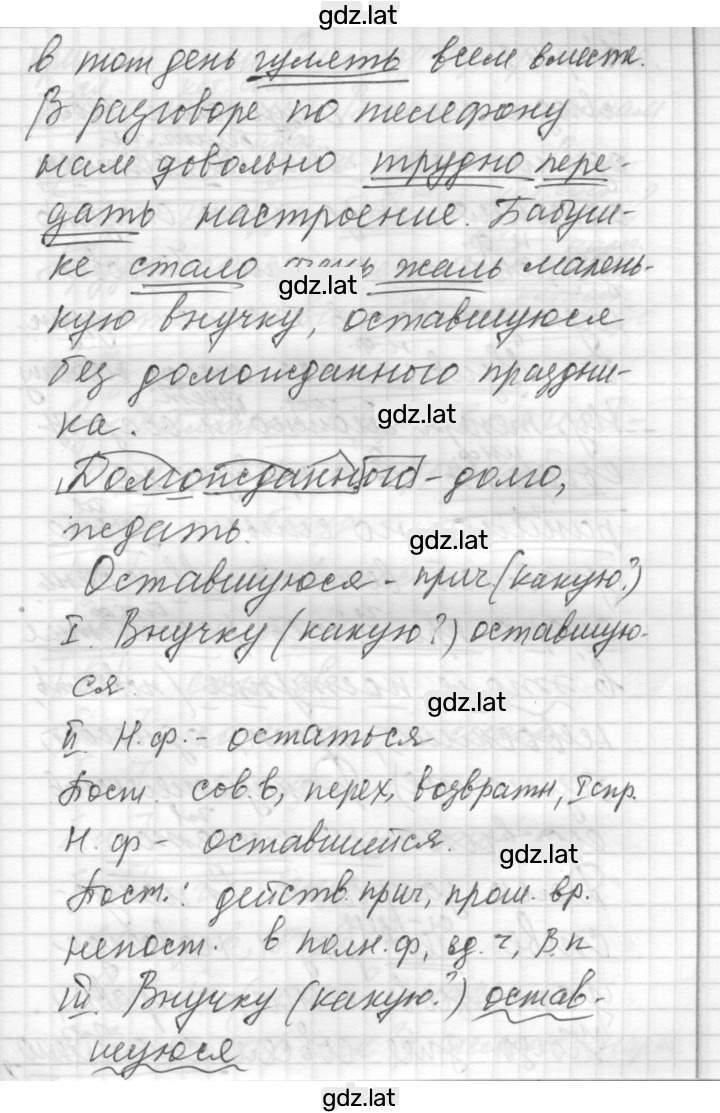 gdz.lat
в тот день гулять всем вместе.
В разговоре по телефону
нам довольно трудно пере-
дать настроение. Бабуш-
ке стало очень жаль малень-
gdz.lat
кую внучку, оставшуюся
без долгожданного праздни-
gdz.lat
ка.
Долгожданного - долго,
ждать.
gdz.lat
Оставшуюся - прич (какую?)
I. Внучку (какую?) оставшую-
ся.
gdz.lat
II. Н.ф. - остаться
Пост. сов.в, перех, возвратн, I спр.
Н.ф - оставшийся.
gdz.lat
Пост.: действ. прич, прош. вр.
непост. в полн.ф, ед.ч, В.п
III. Внучку (какую?) остав-
шуюся
gdz.lat